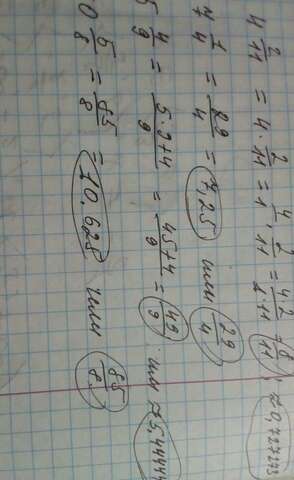 4 2/11 = 4 · 2/11 = 4/1 · 2/11 = 4·2/1·11 = 8/11 ≈ 0,727273
7 1/4 = 29/4 = 7,25 или 29/4
5 4/9 = 5·9+4/9 = 45+4/9 = 49/9 или ≈5,44444
0 5/8 = 85/8 = 10,625 или 85/8